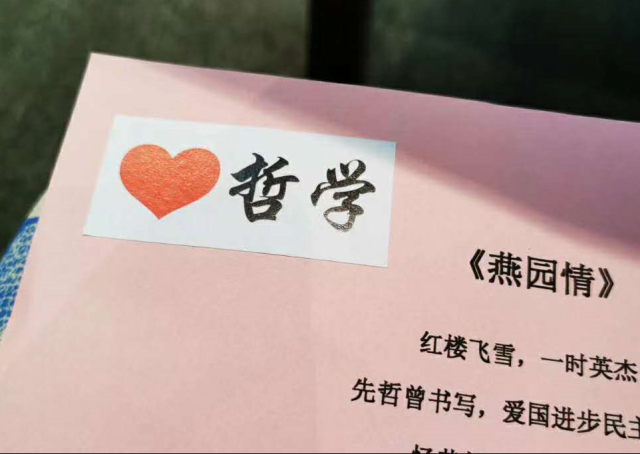 哲学
《燕园情》
红楼飞雪，一时英杰
先哲曾书写，爱国进步民主